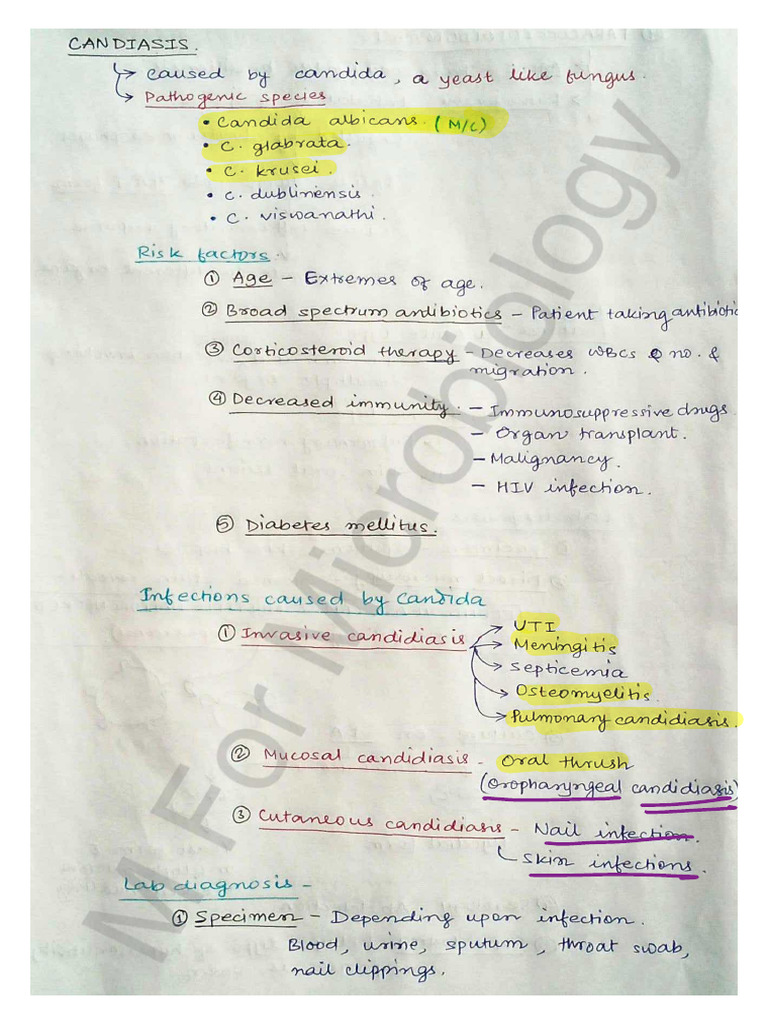 CANDIASIS.
caused by candida, a yeast like fungus.
Pathogenic species
• Candida albicans. (M/C)
• C. glabrata.
• C. krusei.
• C. dublinensis.
• C. viswanathi.
Risk factors.
① Age - Extremes of age.
② Broad spectrum antibiotics - Patient taking antibiotic
③ Corticosteroid therapy - Decreases WBCs no. &
migration.
④ Decreased immunity. - Immunosuppressive drugs
- Organ transplant.
- Malignancy.
- HIV infection.
⑤ Diabetes mellitus.
Infections caused by Candida
① Invasive candidiasis UTI
Meningitis
Septicemia
Osteomyelitis.
Pulmonary candidiasis.
② Mucosal candidiasis - Oral thrush
(Oropharyngeal candidiasis)
③ Cutaneous candidiasis - Nail infection.
Skin infections.
Lab diagnosis -
① Specimen - Depending upon infection.
Blood, urine, sputum, throat swab,
nail clippings.
M For Microbiology